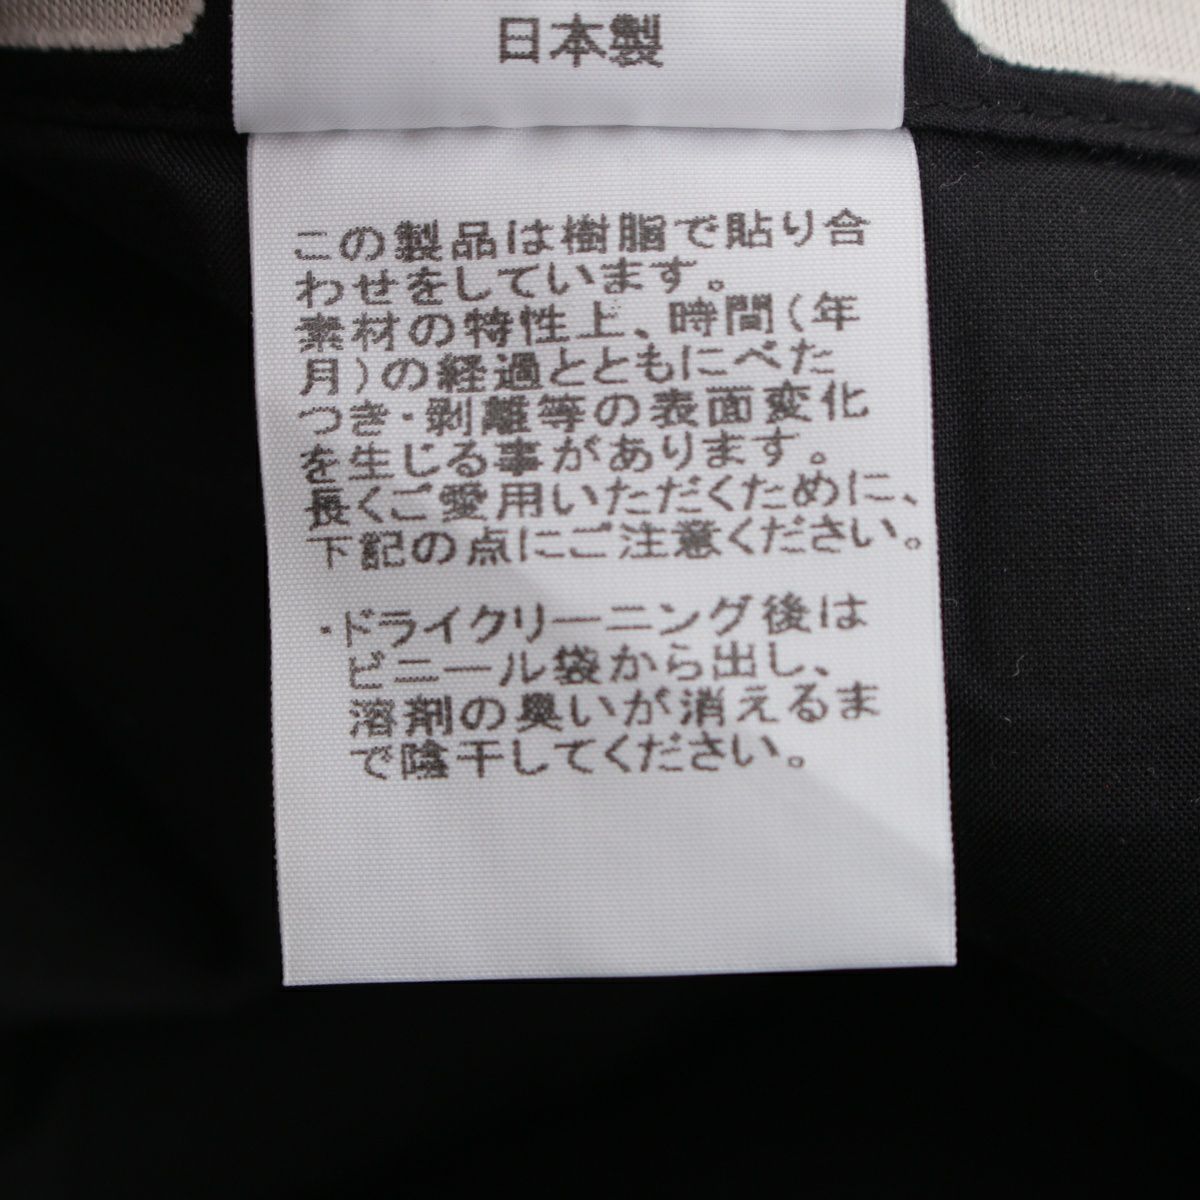 日本製
この製品は樹脂で貼り合
わせをしています。
素材の特性上、時間(年
月)の経過とともにべた
つき・剥離等の表面変化
を生じる事があります。
長くご愛用いただくために、
下記の点にご注意ください。
・ドライクリーニング後は
ビニール袋から出し、
溶剤の臭いが消えるま
で陰干してください。